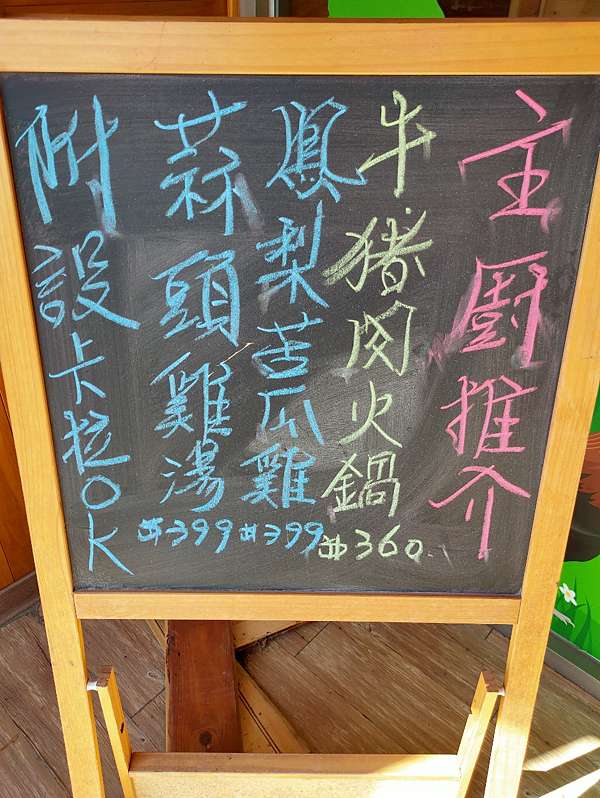 主厨推介
牛猪肉火鍋 $360
鳳梨苦瓜雞 $399
蒜頭雞湯 $399
附設卡拉OK